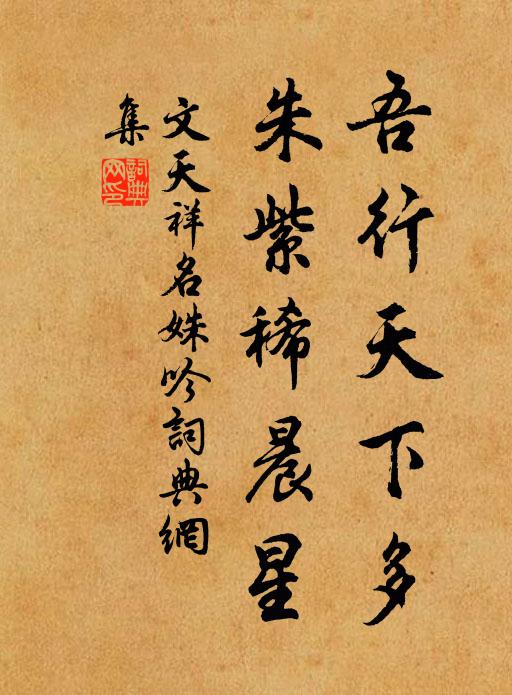 吾行天下多
朱紫稀晨星
文天祥名姝吟詞典網
集
詞典網印